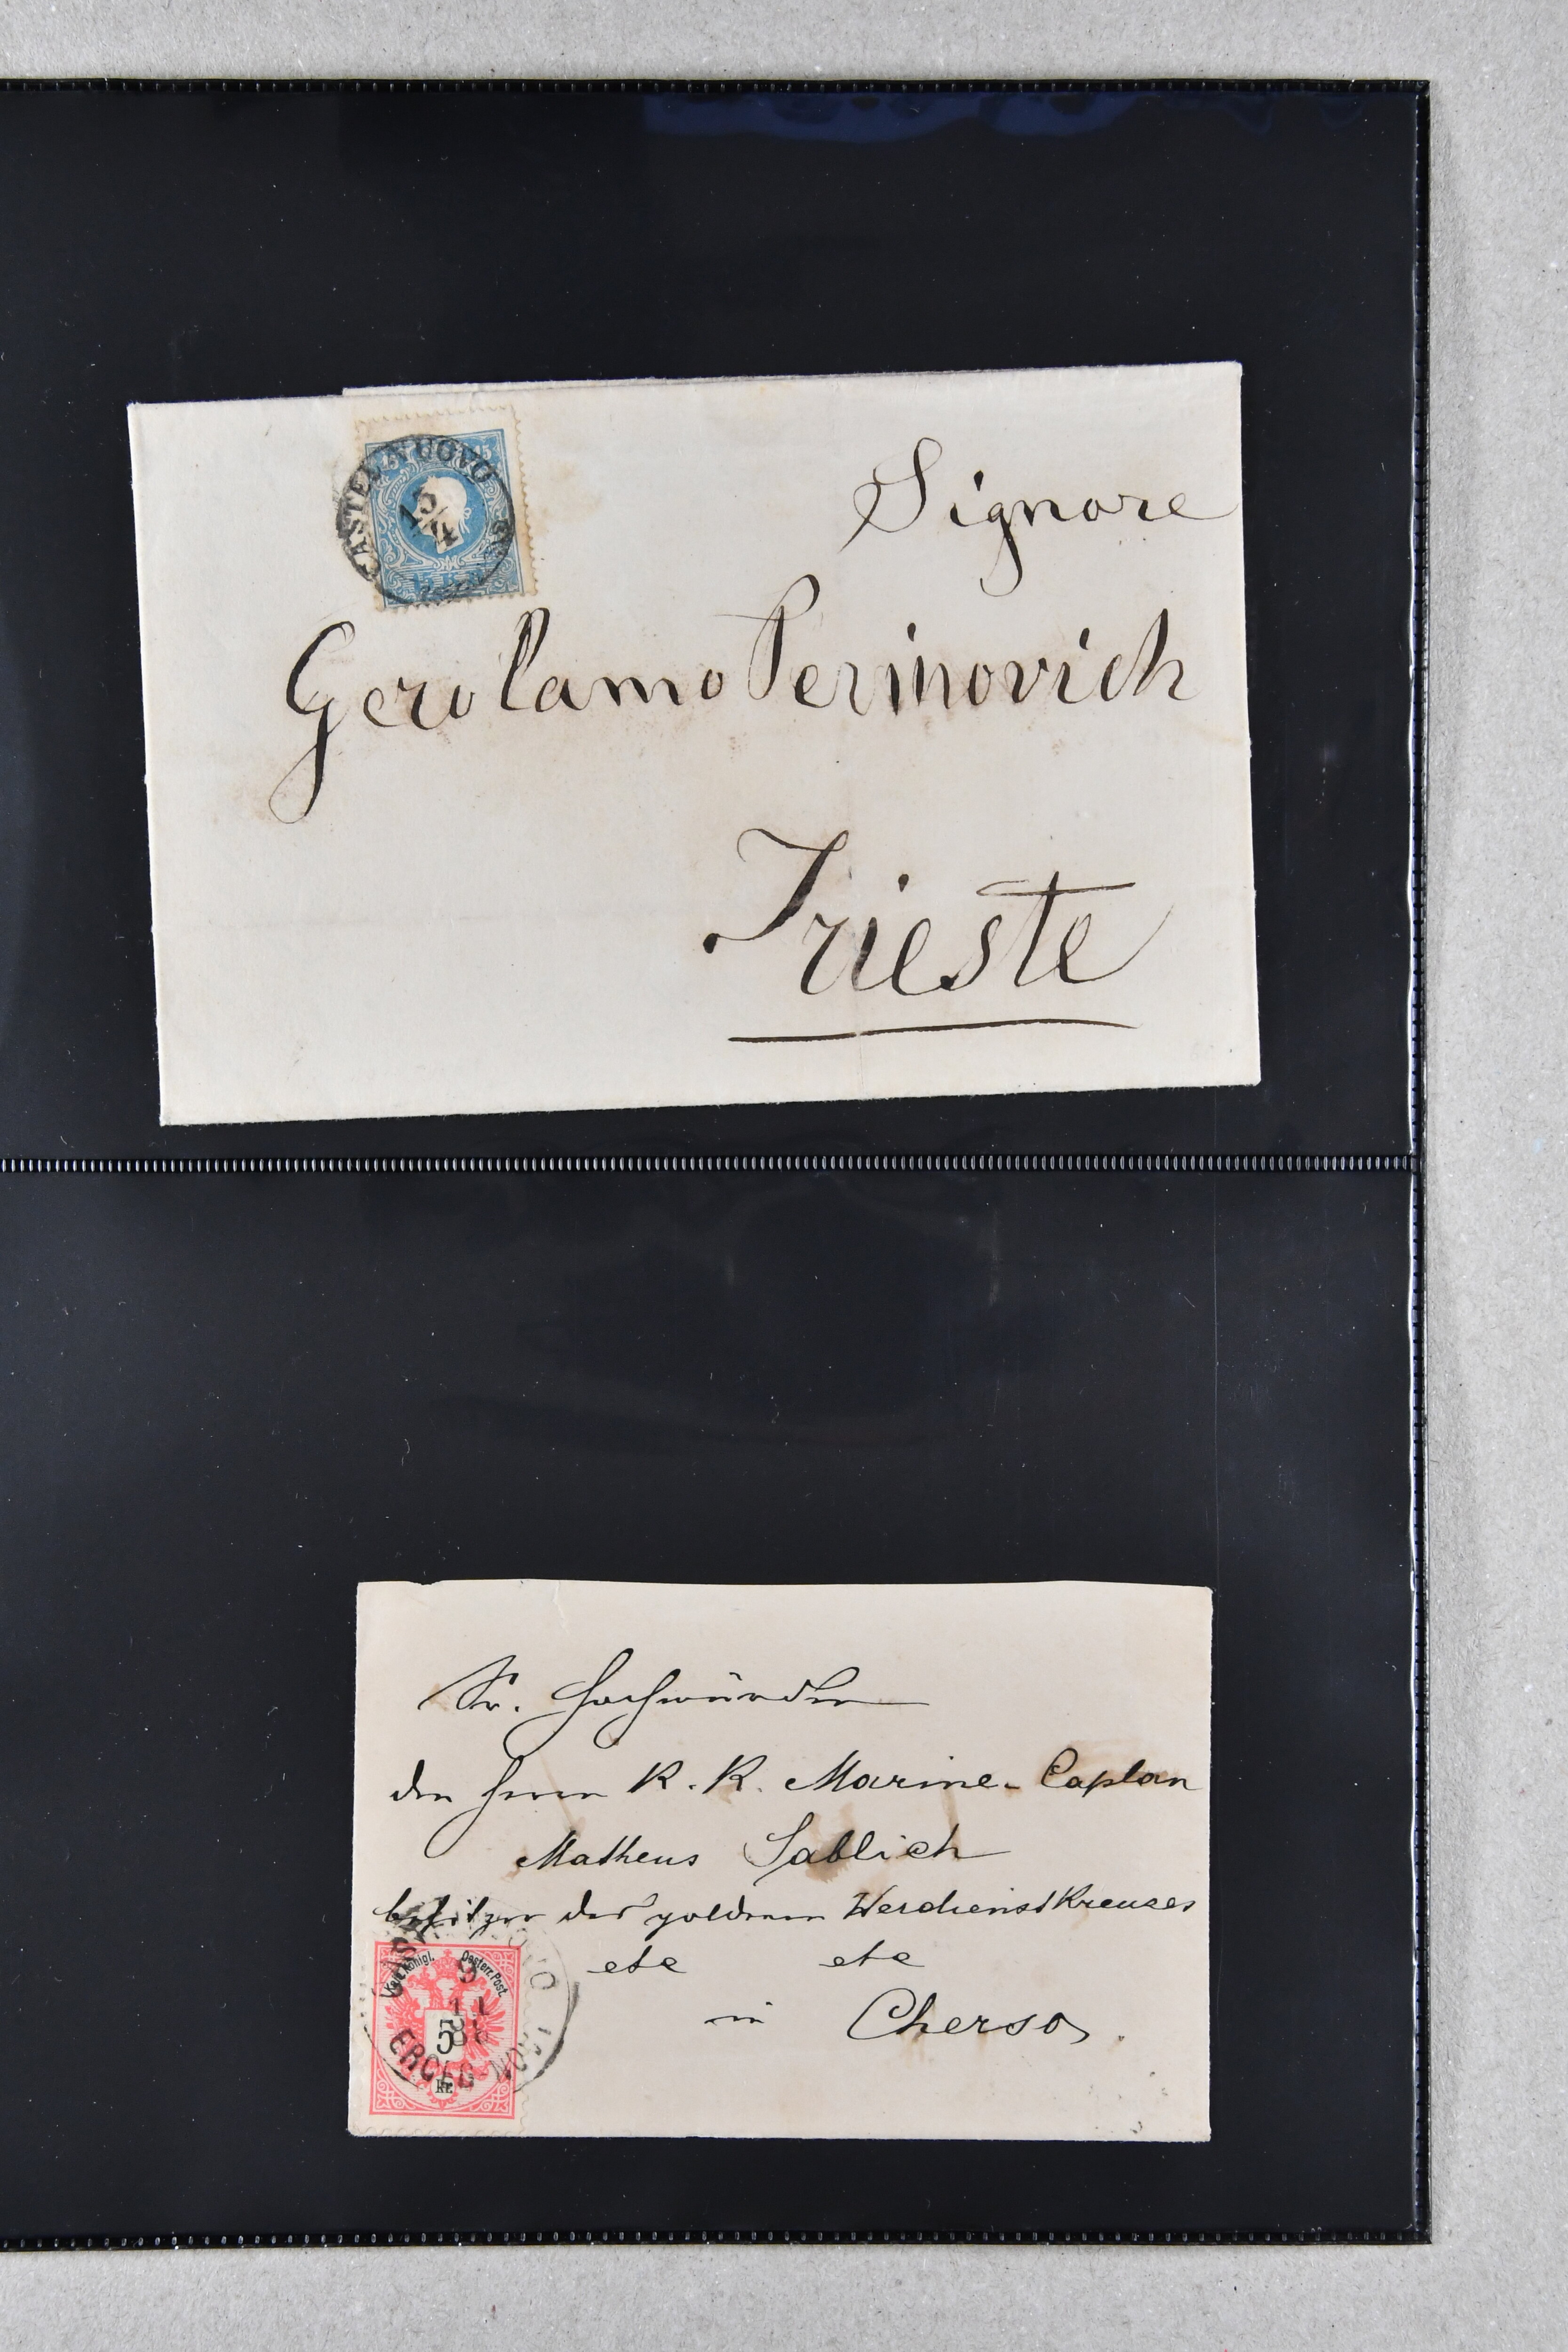 CASTEL NUOVO
15 15
13/4
15 Kr
Signore
Gerolamo Perinovich
Trieste
Sr. Hochwürden
den Herrn K. K. Marine-Caplan
Matheus Sablich
besitzer des goldenen Verdienstkreuzes
etc etc
in Cherso.
Kais. Königl. Oesterr. Post.
5
Kr.
9
11
ERCEG-NOVI